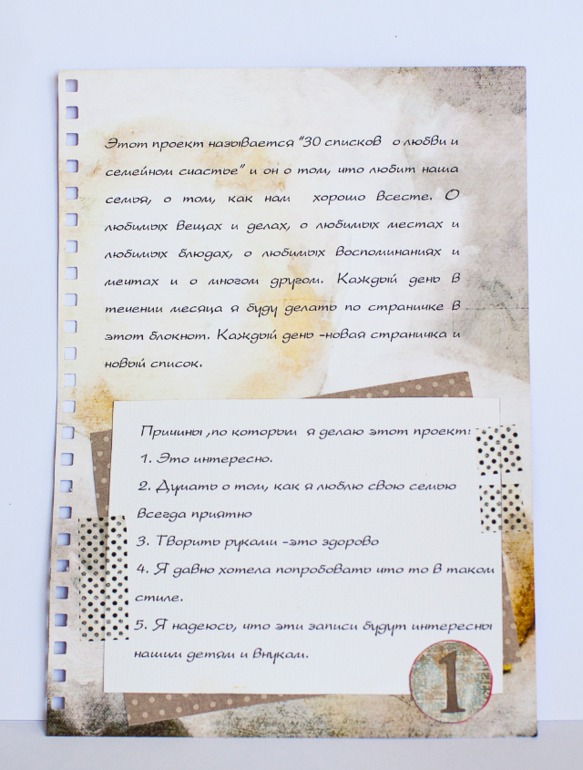 Этот проект называется "30 списков о любви и
семейном счастье" и он о том, что любит наша
семья, о том, как нам хорошо вместе. О
любимых вещах и делах, о любимых местах и
любимых блюдах, о любимых воспоминаниях и
мечтах и о многом другом. Каждый день в
течении месяца я буду делать по страничке в
этот блокнот. Каждый день -новая страничка и
новый список.
Причины ,по которым я делаю этот проект:
1. Это интересно.
2. Думать о том, как я люблю свою семью
всегда приятно
3. Творить руками -это здорово
4. Я давно хотела попробовать что то в таком
стиле.
5. Я надеюсь, что эти записи будут интересны
нашим детям и внукам.
1